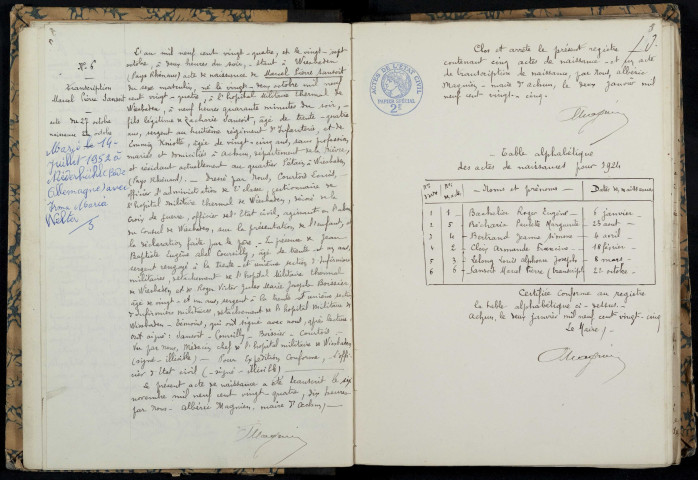 N° 6
Transcription
Marcel Pierre Sansoit
acte du 27 octobre
naissance 22 octobre
Marié le 14
Juillet 1952 à
Allemagne) avec
Irma Maria
Welter
L'an mil neuf cent vingt-quatre, et le vingt-sept
octobre, à deux heures du soir, étant à Wiesbaden
(Pays Rhénans) acte de naissance de Marcel Pierre Sansoit
du sexe masculin, né le vingt-deux octobre mil neuf
cent vingt-quatre, à l'hôpital militaire thermal de
Wiesbaden, à neuf heures quarante minutes du soir,
fils légitime de Zacharie Sansoit, âgé de trente-quatre
ans, sergent au huitième régiment d'Infanterie, et de
Emmy Kniotte, âgée de vingt-cinq ans, sans profession,
mariés et domiciliés à Achun, département de la Nièvre,
et résidant actuellement au quartier Pétain, à Wiesbaden,
(Pays Rhénans). — Dressé par Nous, Courtois Louis,
officier d'administration de 2e classe, gestionnaire de
l'hôpital militaire thermal de Wiesbaden, décoré de la
Croix de guerre, officier de l'Etat civil, agissant
du Consul de Wiesbaden, sur la présentation de l'enfant, et
la déclaration faite par le père. En présence de Jean
Baptiste Eugène Abel Couvilly, âgé de trente et un ans,
sergent rengagé à la trente et unième section d'Infirmiers
militaires, détachement de l'hôpital militaire thermal
de Wiesbaden et de Roger Victor Jules Marie Joseph Boissier,
âgé de vingt et un ans, sergent à la trente et unième section
d'Infirmiers militaires, détachement de l'hôpital militaire de
Wiesbaden, témoins, qui ont signé avec nous, après lecture
ont signé : Sansoit - Couvilly - Boissier - Courtois.
Vu par nous, Médecin chef de l'hôpital militaire de Wiesbaden
(signé - illisible) — Pour expédition conforme, l'offi-
cier d'état civil (- signé - illisible) —
Le présent acte de naissance a été transcrit le six
novembre mil neuf cent vingt-quatre, dix heures
par Nous - Albéric Magnien, maire d'Achun, —
Magnien
Clos et arrêté le présent registre
contenant cinq actes de naissance - et un acte
de transcription de naissance, par Nous, Albéric
Magnien - maire d'Achun, le deux janvier mil
neuf cent vingt-cinq.
Magnien
ACTES DE L'ETAT CIVIL
PAPIER SPÉCIAL
2F
Table alphabétique
des actes de naissances pour 1924
Noms et prénoms Dates de naissances
1 1 Bachelier Roger Eugène 6 janvier
2 5 Béchard Paulette Marguerite 23 août
3 4 Bertrand Jeanne Simone 6 avril
4 2 Cloix Armande Francine 18 février
5 3 Lelong Louis Alphonse Joseph 8 mars
6 6 Sansoit Marcel Pierre (transcription) 22 octobre
Certifiée conforme au registre
la table alphabétique ci-dessus.
Achun, le deux janvier mil neuf cent vingt-cinq
Le Maire,
Magnien